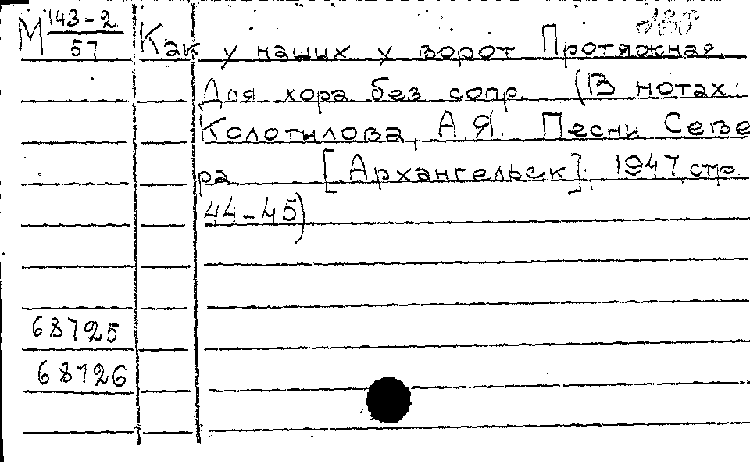 М 143-2/57 Как у наших у ворот Протяжная.
Для хора без сопр. (В нотах:
Колотилова, А.Я. Песни Севе
ра [Архангельск], 1947, стр.
44-45)
68725
68726